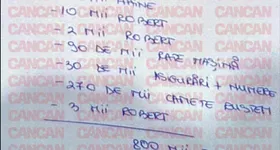 - 10 MII ROBERT
- 2 MII ROBERT
- 90 DE MII RATE MAȘINĂ
- 30 DE MII ASIGURĂRI + NUMERE
- 270 DE MII
- 3 MII ROBERT
800 MII
CANCAN CANCAN CANCAN CANCAN